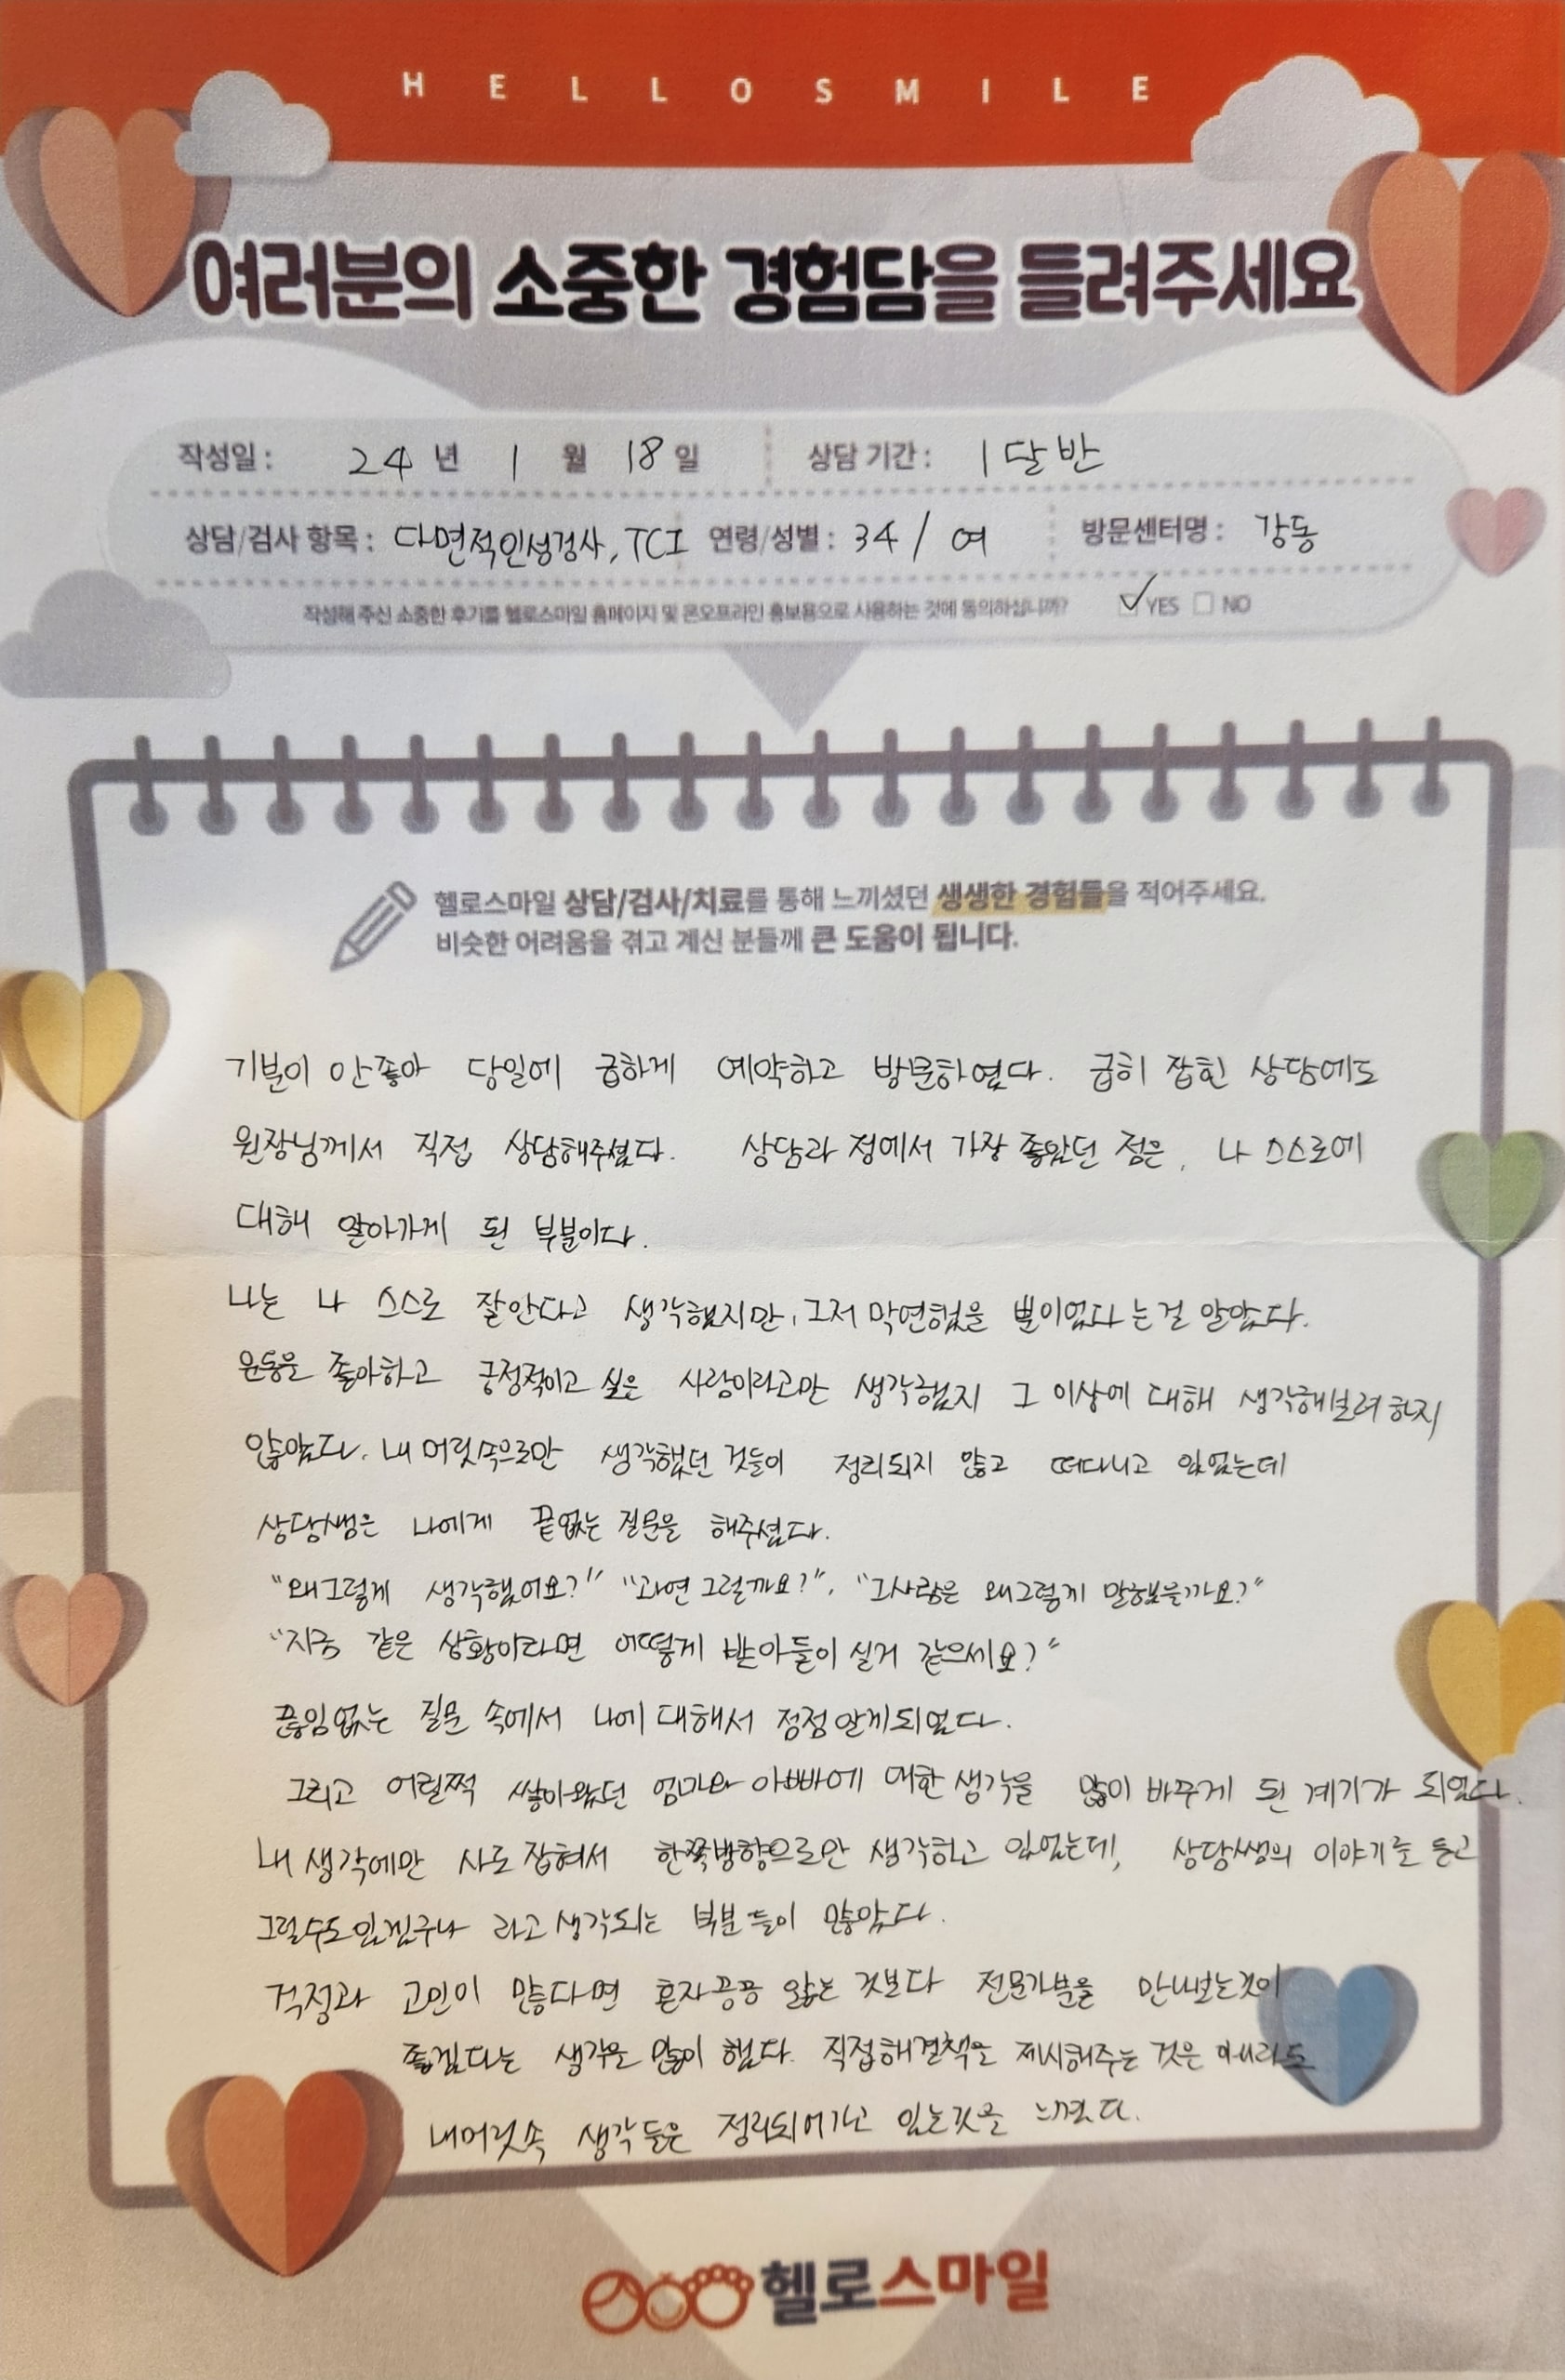 HELLOSMILE
여러분의 소중한 경험담을 들려주세요
작성일 : 24 년 1 월 18 일 상담 기간 : 1달반
상담/검사 항목 : 다면적인성검사, TCI 연령/성별 : 34 / 여 방문센터명 : 강동
작성해 주신 소중한 후기를 헬로스마일 홈페이지 및 온오프라인 홍보용으로 사용하는 것에 동의하십니까? YES NO
헬로스마일 상담/검사/치료를 통해 느끼셨던 생생한 경험들을 적어주세요.
비슷한 어려움을 겪고 계신 분들께 큰 도움이 됩니다.
기분이 안좋아 당일에 급하게 예약하고 방문하였다. 급히 잡힌 상담에도
원장님께서 직접 상담해주셨다. 상담과정에서 가장 좋았던 점은, 나 스스로에
대해 알아가게 된 부분이다.
나는 나 스스로 잘안다고 생각했지만, 그저 막연했을 뿐이었다는걸 알았다.
운동을 좋아하고 긍정적이고 싶은 사람이라고만 생각했지 그 이상에 대해 생각해보려 하지
않았다. 내 머릿속으로만 생각했던 것들이 정리되지 않고 떠다니고 있었는데
상담쌤은 나에게 끝없는 질문을 해주셨다.
"왜그렇게 생각했어요?" "과연 그럴까요?", "그사람은 왜그렇게 말했을까요?"
"지금 같은 상황이라면 어떻게 받아들이실거 같으세요?"
끊임없는 질문 속에서 나에 대해서 점점 알게되었다.
그리고 어릴쩍 쌓아왔던 엄마와 아빠에 대한 생각을 많이 바꾸게 된 계기가 되었다.
내 생각에만 사로잡혀서 한쪽방향으로만 생각하고 있었는데, 상담쌤의 이야기를 듣고
그럴수도있겠구나 라고 생각되는 부분들이 많았다.
걱정과 고민이 많다면 혼자끙끙 앓는 것보다 전문가분을 만나보는것이
좋겠다는 생각을 많이 했다. 직접해결책을 제시해주는 것은 아니라도
내머릿속 생각들은 정리되어가고 있는것을 느꼈다.
헬로스마일